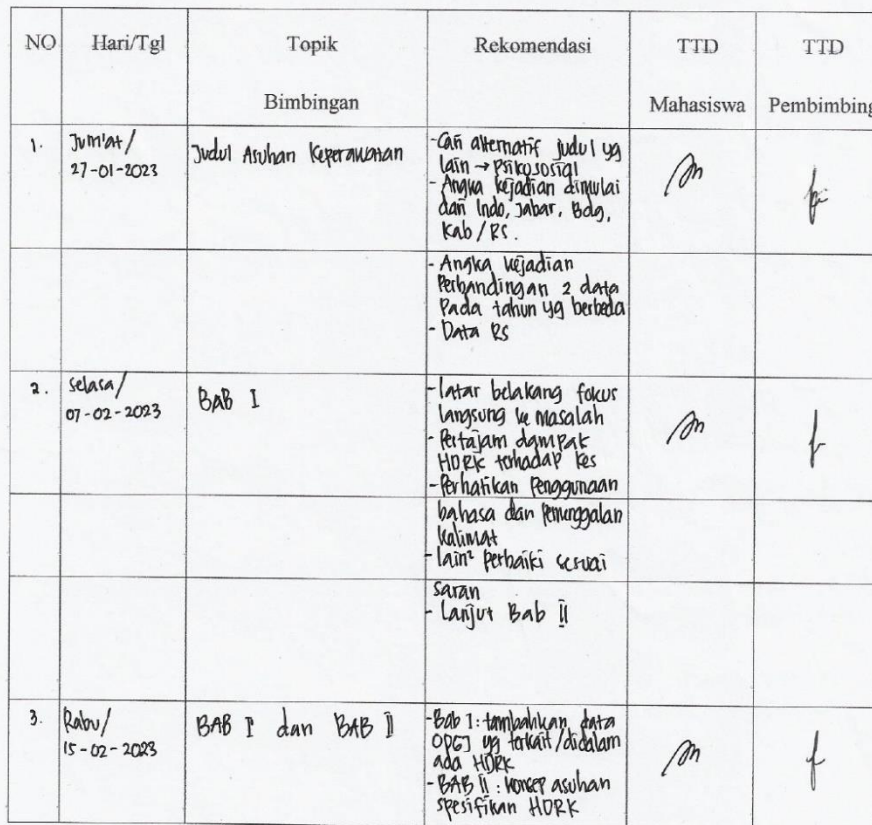 NO Hari/Tgl Topik Bimbingan Rekomendasi TTD Mahasiswa TTD Pembimbing
1. Jum'at/
27-01-2023
Judul Asuhan Keperawatan
- Cari alternatif judul yg
lain → Psikososial
- Angka kejadian dimulai
dari Indo, Jabar, Bdg,
Kab/RS.
- Angka kejadian
Perbandingan 2 data
Pada tahun yg berbeda
- Data RS
2. Selasa/
07-02-2023
BAB I
- latar belakang fokus
langsung ke masalah
- Pertajam dampak
HDRK terhadap kes
- Perhatikan Penggunaan
bahasa dan Pemenggalan
kalimat
- lain² Perbaiki sesuai
saran
- Lanjut Bab II
3. Rabu/
15-02-2023
BAB I dan BAB II
- Bab I: tambahkan data
ODGJ yg terkait/didalam
ada HDRK
- BAB II: konsep asuhan
spesifikan HDRK